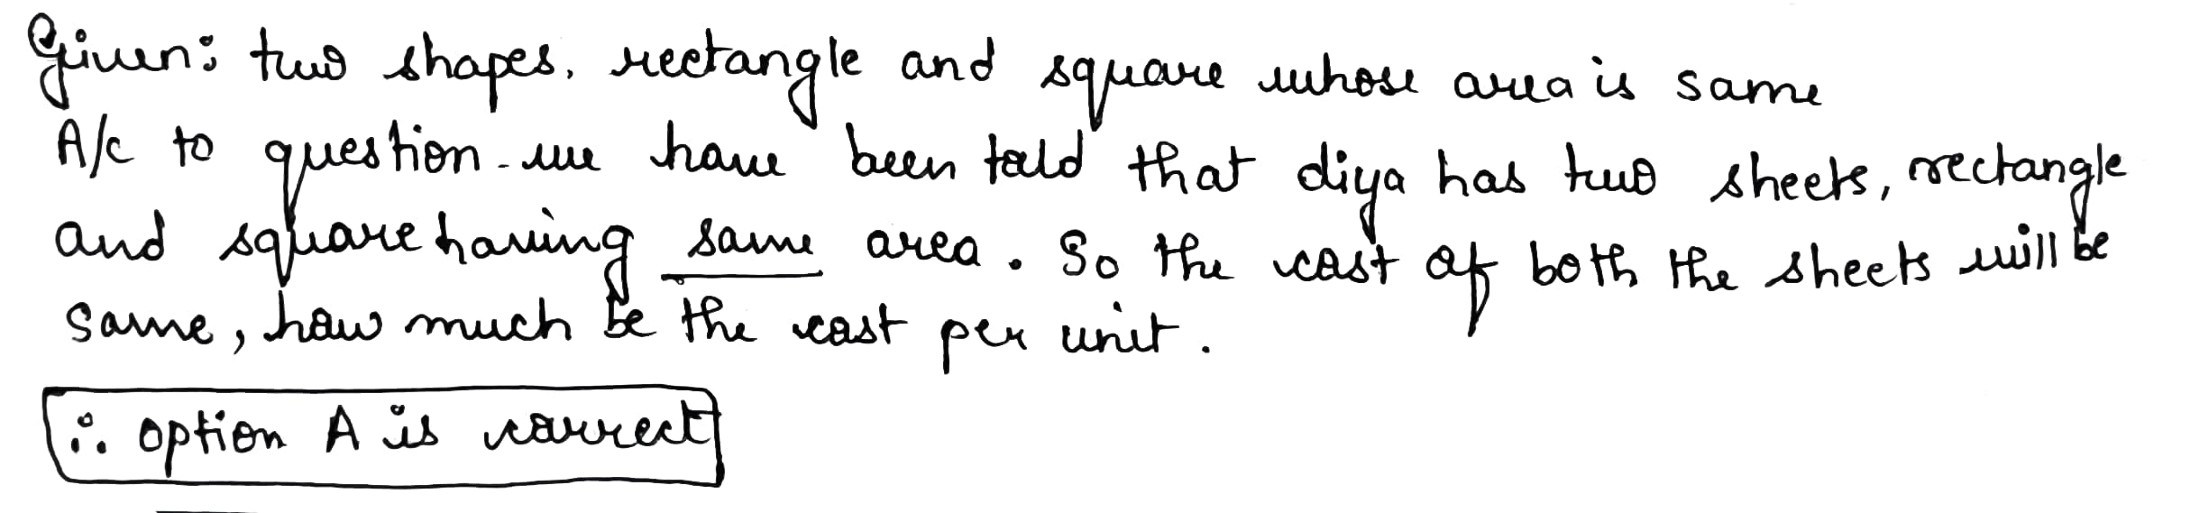 Given: two shapes, rectangle and square whose area is same
A/c to question - we have been told that diya has two sheets, rectangle
and square having same area. So the cost of both the sheets will be
same, how much be the cost per unit.
∴ option A is correct